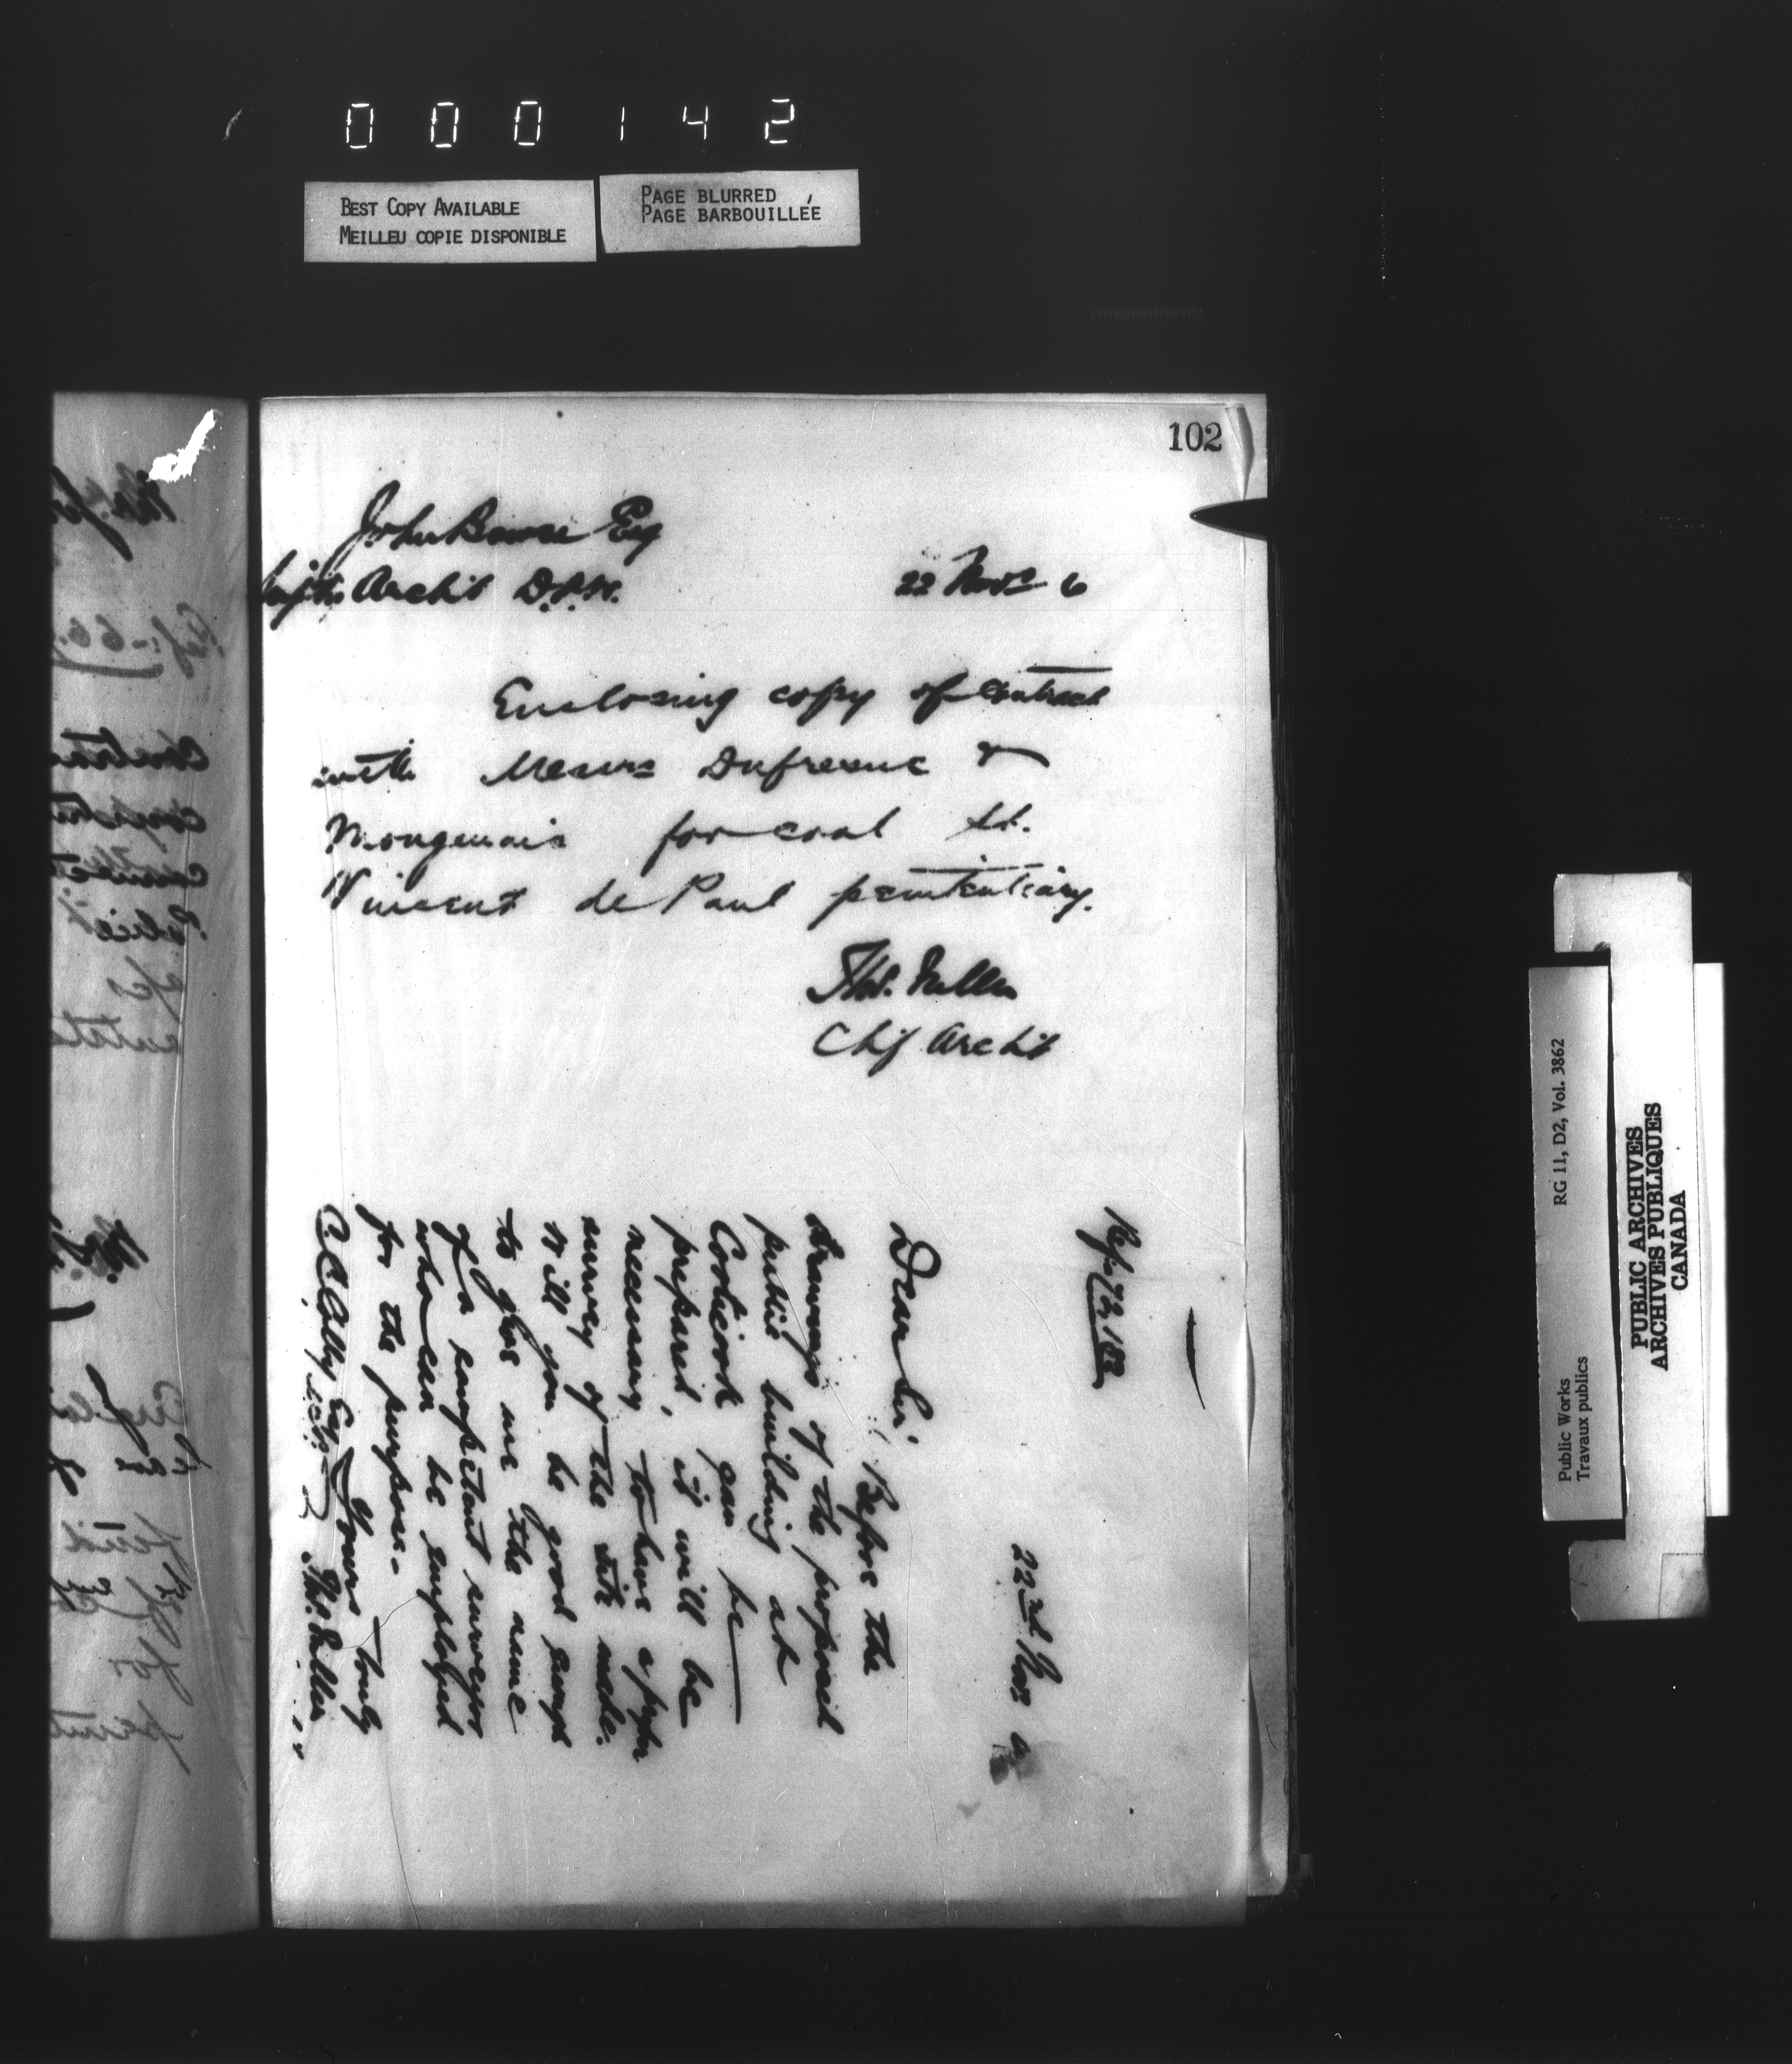 000142
BEST COPY AVAILABLE
MEILLEU COPIE DISPONIBLE
PAGE BLURRED
PAGE BARBOUILLÉE
102
John Bowes Esq
Archt D.P.W.
22 Novr 6
Enclosing copy of Contract
with Messrs Dufresne &
Mongenais for coal St.
Vincent de Paul penitentiary.
Thos. Fuller
Chf Archt
Ref. 72.182
22nd Nov 6
Dear Sir,
Before the
drawings of the proposed
public building at
Coaticook can be
prepared, it will be
necessary to have a proper
survey of the site made.
Will you be good enough
to give me the name
of a competent surveyor
who can be employed
for the purpose.
Yours truly
Thos. Fuller
A. C. Colby Esq
RG 11, D2, Vol. 3862
Public Works
Travaux publics
PUBLIC ARCHIVES
ARCHIVES PUBLIQUES
CANADA